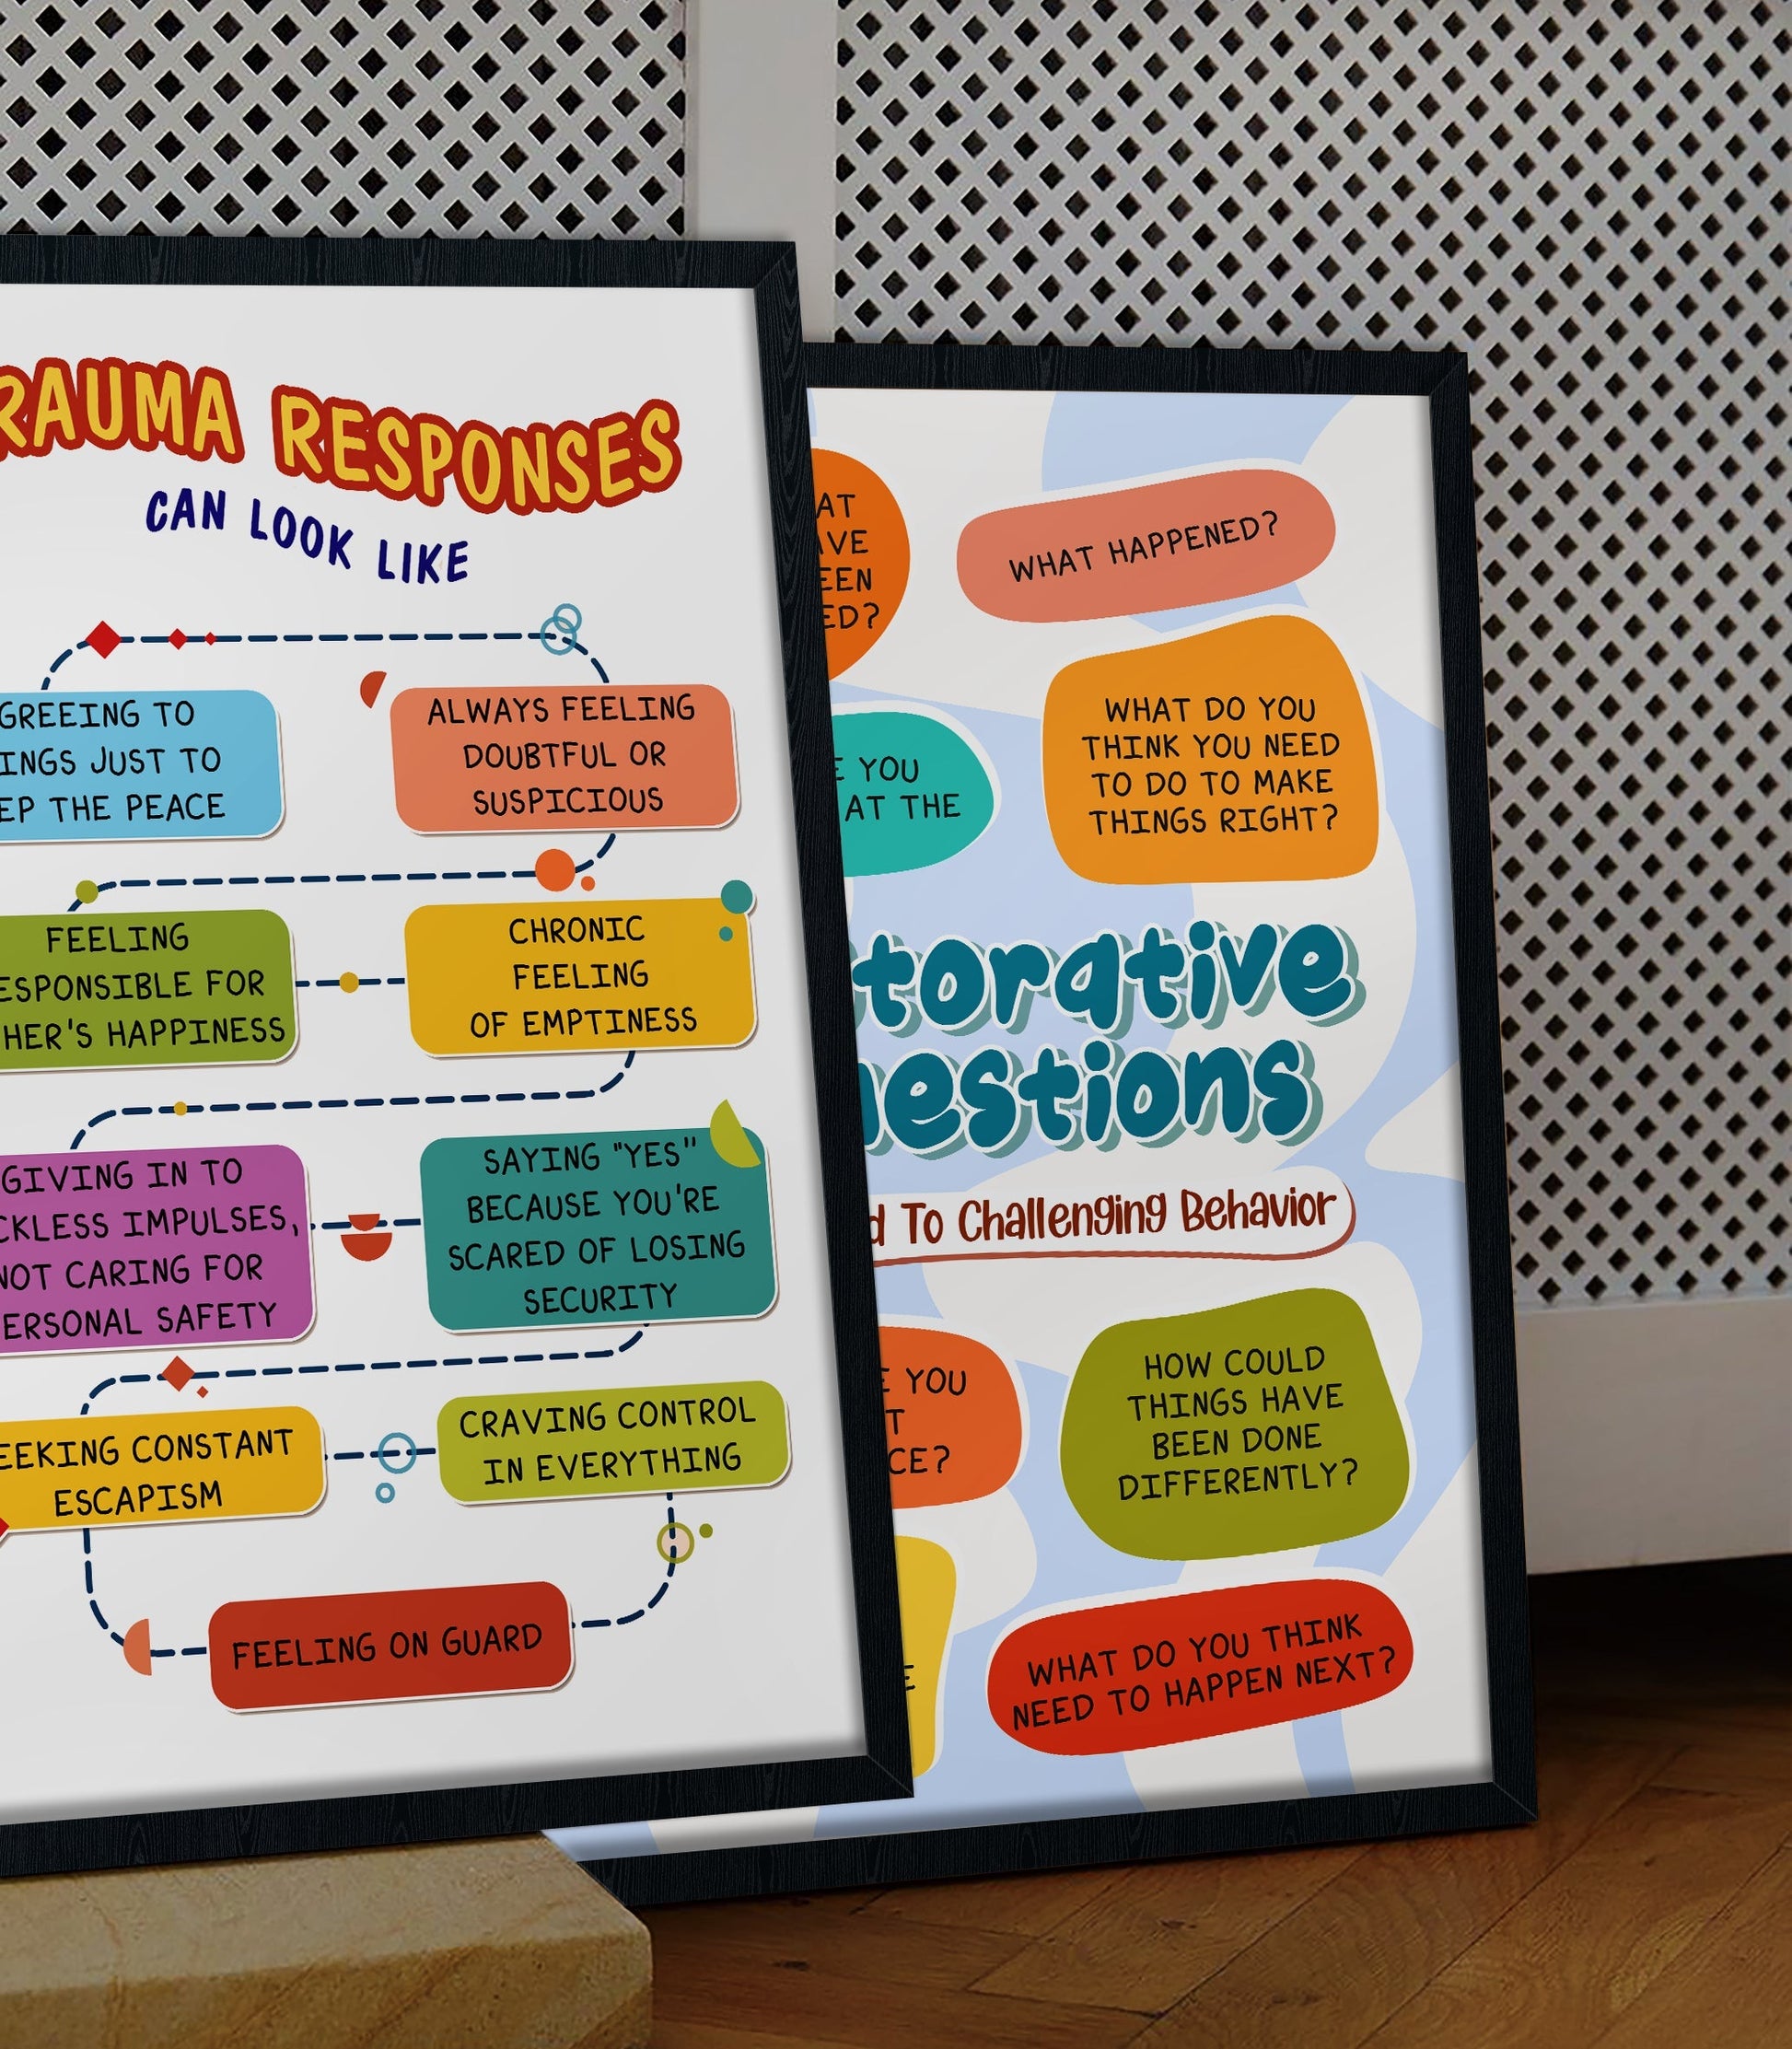 RAUMA RESPONSES
CAN LOOK LIKE
GREEING TO
INGS JUST TO
EP THE PEACE
ALWAYS FEELING
DOUBTFUL OR
SUSPICIOUS
FEELING
ESPONSIBLE FOR
HER'S HAPPINESS
CHRONIC
FEELING
OF EMPTINESS
GIVING IN TO
CKLESS IMPULSES,
NOT CARING FOR
ERSONAL SAFETY
SAYING "YES"
BECAUSE YOU'RE
SCARED OF LOSING
SECURITY
EEKING CONSTANT
ESCAPISM
CRAVING CONTROL
IN EVERYTHING
FEELING ON GUARD
AT
AVE
EEN
ED?
WHAT HAPPENED?
E YOU
AT THE
WHAT DO YOU
THINK YOU NEED
TO DO TO MAKE
THINGS RIGHT?
torative
estions
d To Challenging Behavior
E YOU
T
CE?
HOW COULD
THINGS HAVE
BEEN DONE
DIFFERENTLY?
E
WHAT DO YOU THINK
NEED TO HAPPEN NEXT?